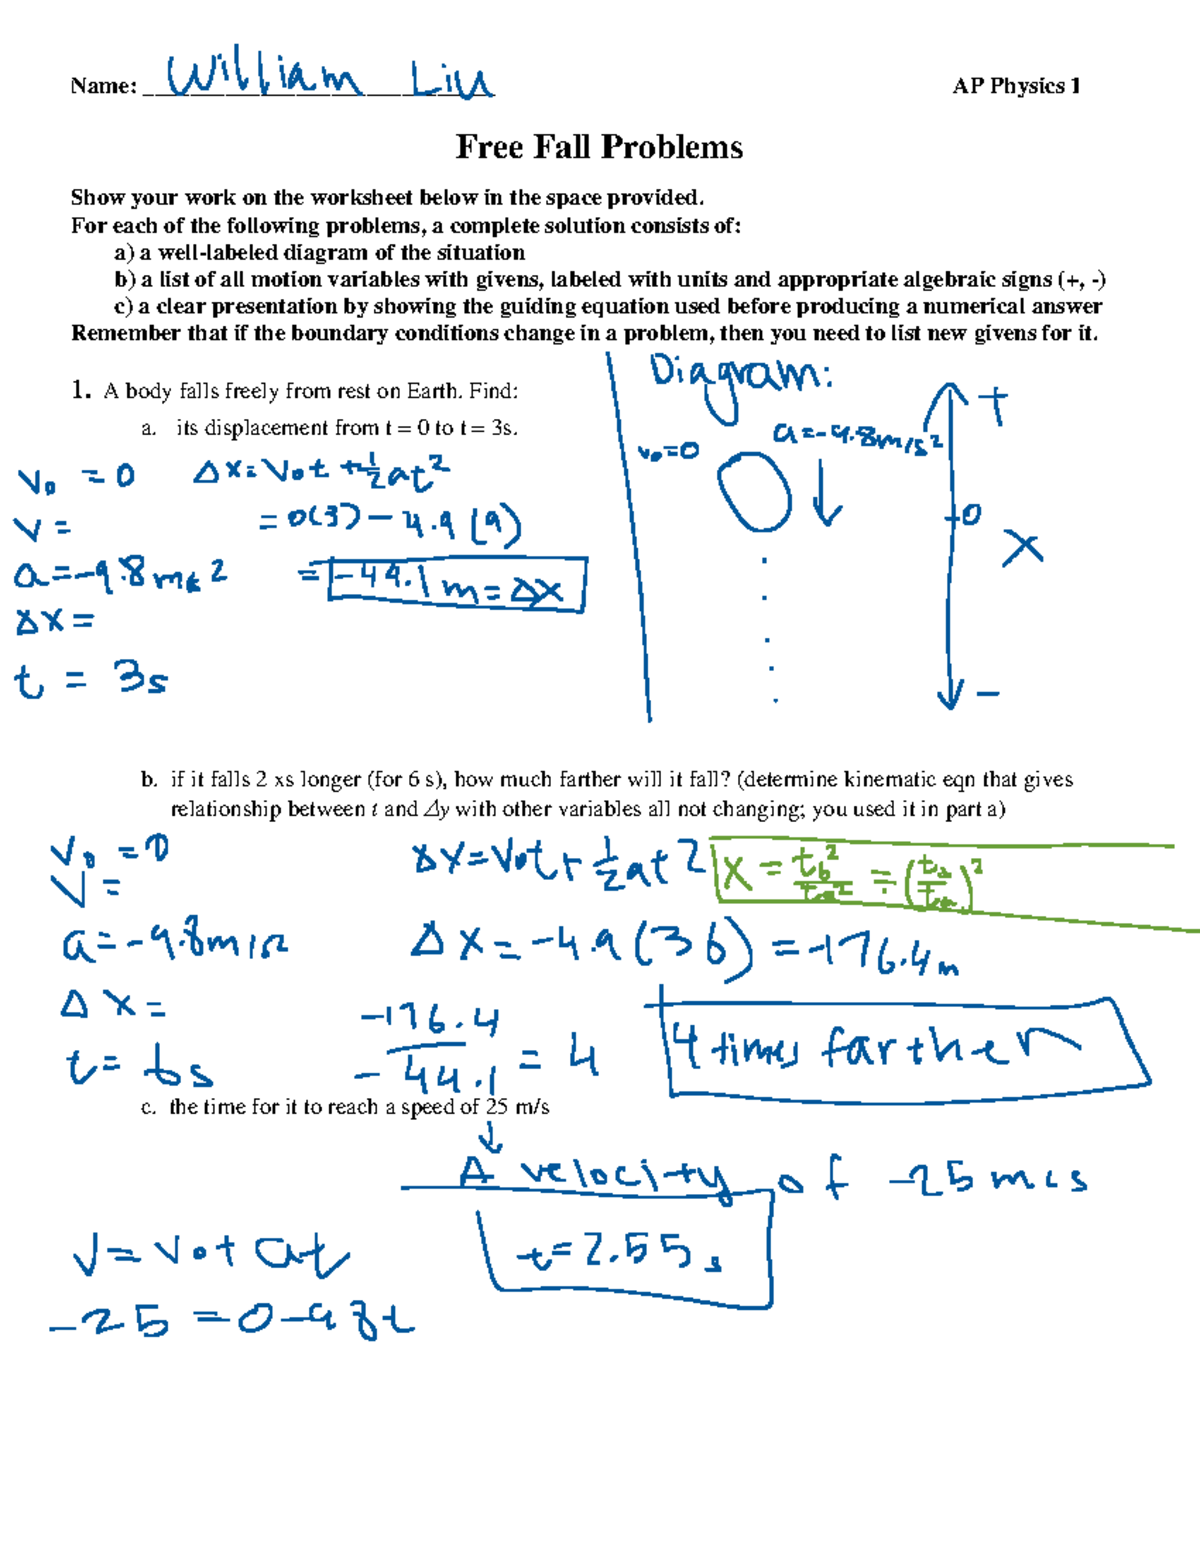 Name: William Liu AP Physics 1
Free Fall Problems
Show your work on the worksheet below in the space provided.
For each of the following problems, a complete solution consists of:
a) a well-labeled diagram of the situation
b) a list of all motion variables with givens, labeled with units and appropriate algebraic signs (+, -)
c) a clear presentation by showing the guiding equation used before producing a numerical answer
Remember that if the boundary conditions change in a problem, then you need to list new givens for it.
Diagram:
1. A body falls freely from rest on Earth. Find:
+
a. its displacement from t = 0 to t = 3s.
a=-9.8m/s²
v₀=0
v₀ = 0 Δx=v₀t+½at²
v = =0(3)-4.9(9)
0
x
a=-9.8m/s² =-44.1m=Δx
Δx=
t = 3s
-
b. if it falls 2 xs longer (for 6 s), how much farther will it fall? (determine kinematic eqn that gives
relationship between t and Δy with other variables all not changing; you used it in part a)
v₀=0 Δx=v₀t+½at² x=
v=
a=-9.8m/s² Δx=-4.9(36)=-176.4m
Δx=
-176.4/-44.1=4 4 times farther
t=6s
c. the time for it to reach a speed of 25 m/s
↓
A velocity of -25m/s
v=v₀+at t=2.55s
-25=0-9.8t